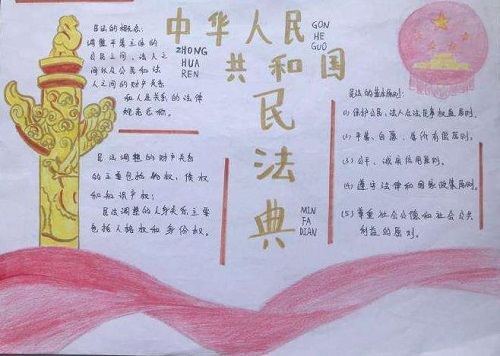 中华人民
共和国
民法典
ZHONG
HUA
REN
GON
HE
GUO
MIN
FA
DIAN
民法的概念:
调整平等主体的
自然人之间、法人之
间和公民和法
人之间的财产关系
和人身关系的法律
规范总称。
民法调整的财产关系
的主要包括物权,债权
和知识产权;
民法调整的人身关系主要
包括人格权和身份权。
民法的基本原则:
(1) 保护公民、法人合法民事权益原则。
(2) 平等、自愿、等价有偿原则。
(3) 公平、诚实信用原则。
(4) 遵守法律和国家政策原则。
(5) 尊重社会公德和社会公共
利益的原则。